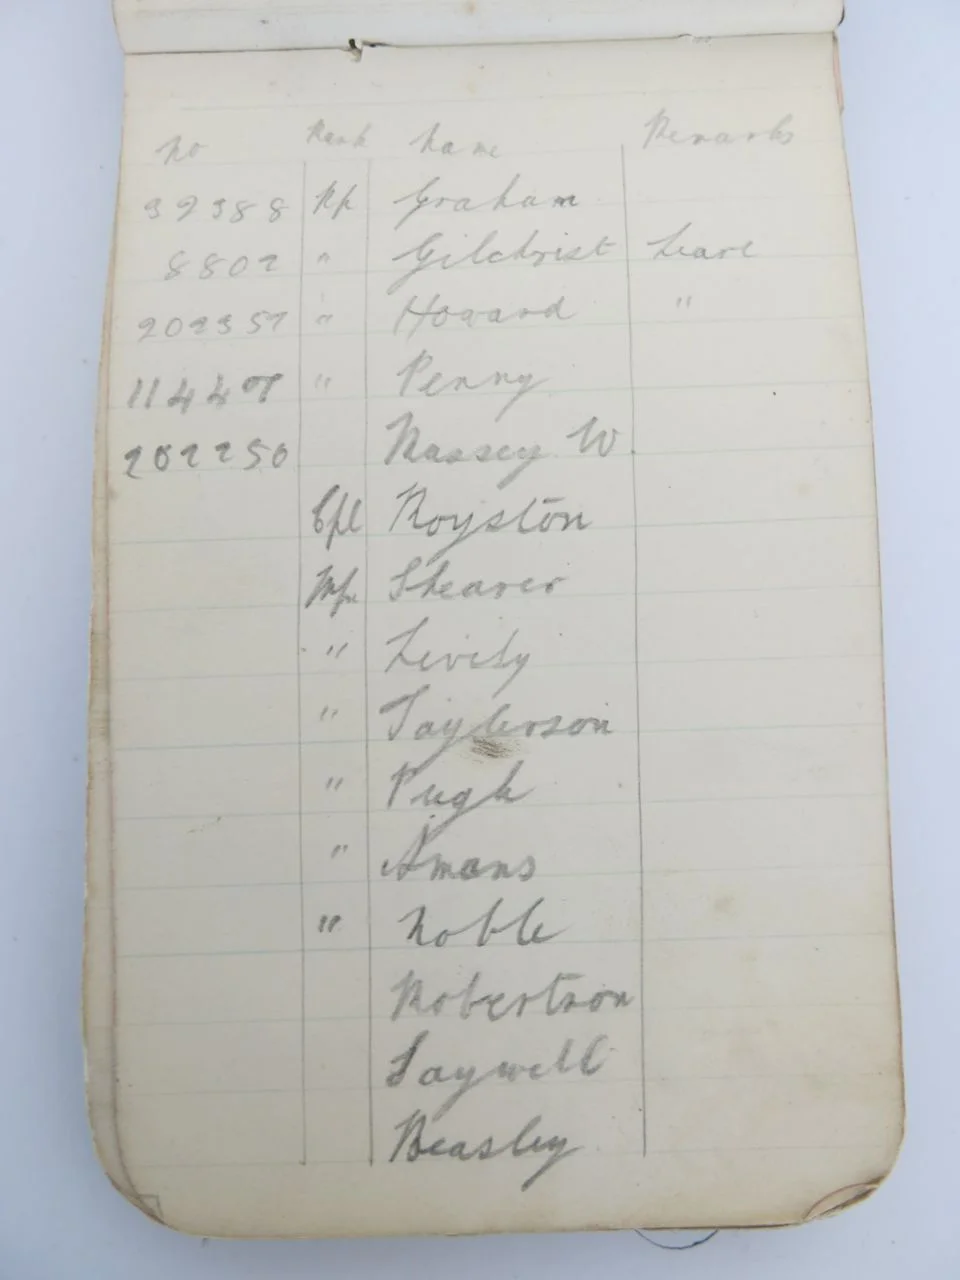 No Rank Name Remarks
39388 Graham
8802 " Gilchrist Leave
202357 " Howard "
" Penny
202250 Massey W
Cpl Royston
Shearer
" Lively
" Taylerson
" Pugh
" Amans
" Noble
Robertson
Saywell
Beasley